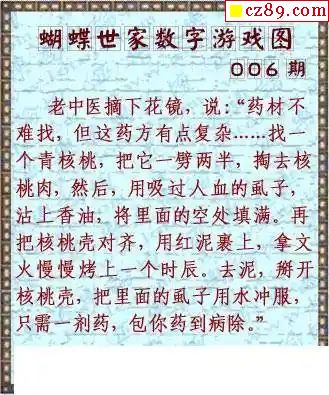 cz89.com
蝴蝶世家数字游戏图
006 期
老中医摘下花镜，说：“药材不
难找，但这药方有点复杂……找一
个青核桃，把它一劈两半，掏去核
桃肉，然后，用吸过人血的虱子，
沾上香油，将里面的空处填满。再
把核桃壳对齐，用红泥裹上，拿文
火慢慢烤上一个时辰。去泥，掰开
核桃壳，把里面的虱子用水冲服，
只需一剂药，包你药到病除。”